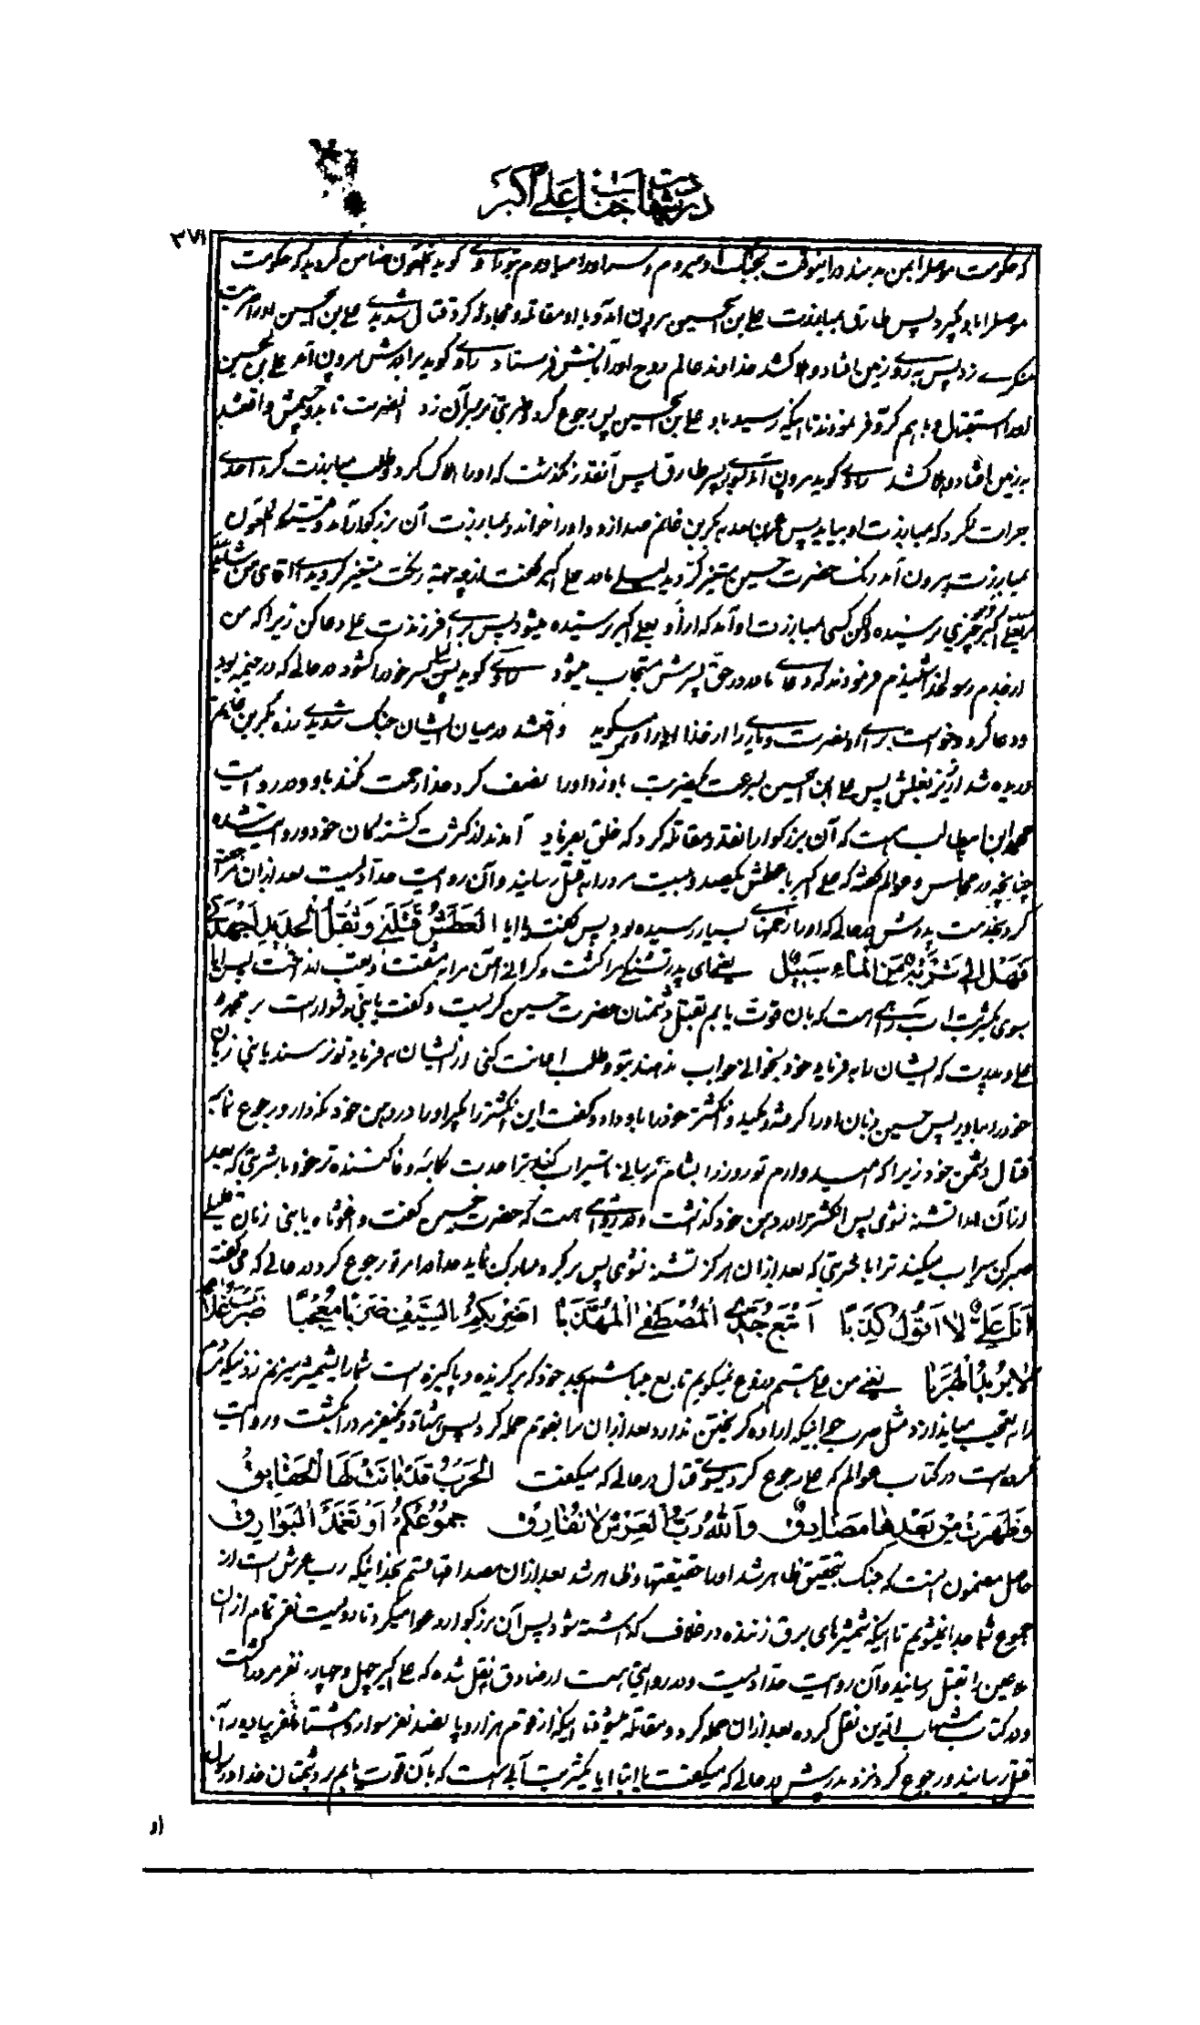 در شهادت جناب علی اکبر
۳۷۱
که حکومت موصل را بمن بدهند در اینوقت بجنگ او میروم و سر او را میاورم تو راوی گوید ملعون ضامن گردید که حکومت
موصل را باو گیرد پس طارق بمبارزت علی بن الحسین بیرون آمد و با او مقاتله و مجادله کرد قتال شدیدی علی بن الحسین او را ضربت
منکری زد پس بروی زمین افتاد و هلاک شد خداوند عالم روح او را بآتش فرستاد راوی گوید برادرش بیرون آمد علی بن الحسین
او را استقبال
بر زمین افتاد و هلاک شد راوی گوید بیرون آمد پسر طارق پس آنقدر نگذشت که او را هلاک کرد و طلب مبارزت کرد احدی
جرات نکرد که بمبارزت او بیاید پس عمر بن سعد بکر بن غانم صدا زد و او را خواند و بمبارزت آن بزرگوار آمد وقتیکه ملعون
بمبارزت بیرون آمد رنگ حضرت حسین متغیر گردید لیلی مادر علی اکبر گفت از چه جهة رنگت متغیر گردید ای آقای من
بعلی اکبر چیزی نرسیده ولکن کسی بمبارزت او آمد که از او بعلی اکبر رسیده میشود پس برای فرزندت علی دعا کن زیرا که من
از جدم رسولخدا شنیدم فرمودند که دعای مادر در حق پسرش مستجاب میشود راوی گوید پس لیلی سر خود را گشود در حالی که در خیمه بود
و دعا کرد و خواست برای او نصرت و یاری را از خدا راوی میگوید واقع شد در میان ایشان جنگ شدیدی زره بکر بن غانم
دریده شد از زیر بغلش پس علی ابن الحسین بسرعت یکضربت باو زد او را نصف کرد خدا رحمت نکند باو و در روایت
محمد ابن ابیطالب است که آن بزرگوار آنقدر مقاتله کرد که خلق بفریاد آمدند از کثرت کشتگان خود و روایت شده
چنانچه در مجالس و عوالم گفته که علی اکبر با عطش یکصد و بیست مرد را بقتل رسانید و آن روایت متداولست بعد از آن مراجعة
کرد بخدمت پدرش در حالی که او را زخمهای بسیار رسیده بود پس گفت یا ابا العَطَشُ قَتَلَنِی وَثِقْلُ الْحَدِیدِ اَجْهَدَنِی
فَهَلْ اِلیٰ شَرْبَةٍ مِنَ الْمَاءِ سَبِیلٌ یعنی ای پدر تشنگی مرا کشت و گرانی آهن مرا بمشقت و تعب انداخت پس آیا
بسوی یکشربت آب راهی هست که بآن قوت یابم بقتل دشمنان حضرت حسین گریست و گفت یا بنی دشوار است بر محمد و
علی و پدرت که ایشان را بفریاد خود بخوانی جواب ندهند بتو و طلب اعانت کنی از ایشان بفریاد تو نرسند یا بنی زبان
خود را بیاور پس حسین زبان او را گرفته و مکید و انگشتر خود را باو داد و گفت این انگشتر را بگیر او را در دهن خود نگهدار و رجوع نما به
قتال دشمن خود زیرا که امیدوارم تو روز را بشام نرسانی تا سیراب کند ترا جدت بکاسه وفا کننده تر خود با شربتی که بعد
از آن ابدا تشنه نشوی پس انگشتر را در دهن خود گذاشت و در روایتی هست که حضرت حسین گفت وا غوثاه یا بنی زمان قلیلی
صبر کن سیراب میکند ترا با شربتی که بعد از آن هرگز تشنه نشوی
اَنَا عَلِیٌّ لَا اَقُولُ کَذِبًا اَتْبَعُ جَدِّی الْمُصْطَفَی الْمُهَذَّبَا اَضْرِبُکُمْ بِالسَّیْفِ ضَرْبًا مُعْجِبًا ضَرْبَ غُلَامٍ
لَا یُرِیدُ الْهَرَبَا یعنی من علی هستم دروغ نمیگویم تابع میباشم بجد خود که برگزیده و پاکیزه است شما را بشمشیر میزنم زدنیکه مردم
را بتعجب میاندازد مثل ضرب جوانیکه اراده گریختن ندارد بعد از آن بر قوم حمله کرد پس هشتاد و یکنفر مرد را کشت و روایت
کرده است در کتاب عوالم که علی رجوع کرد بسوی قتال در حالی که میگفت الْحَرْبُ قَدْ بَانَتْ لَهَا الْحَقَایِقُ
وَظَهَرَتْ مِنْ بَعْدِهَا مَصَادِیقُ وَاللّٰهِ رَبِّ الْعَرْشِ لَا نُفَارِقُ جُمُوعَکُمْ اَوْ تُغْمَدَ الْبَوَارِقُ
حاصل مضمون اینست که جنگ بتحقیق ظاهر شد او را حقیقتها و ظاهر شد بعد از آن مصداقها قسم بخدائیکه رب عرش است از
جموع شما جدا نمیشویم تا اینکه شمشیرهای برق زننده در غلاف گذاشته شود پس آن بزرگوار دعوا میکرد تا دویست نفر تمام از آن
ملاعین را بقتل رسانید و آن روایت متداولست و در روایتی هست از صادق نقل شده که علی اکبر چهل و چهار نفر مرد را کشت
و در کتاب شهاب الدین نقل کرده بعد از آن حمله کرد و مقاتله مینمود تا اینکه از قوم هزار و پانصد نفر سوار و هشتاد نفر پیاده را
بقتل رسانید و رجوع کرد نزد پدرش در حالی که میگفت یا ابتا آیا یکشربت آبی هست که بآن قوت یابم بر دشمنان خدا و رسول
از